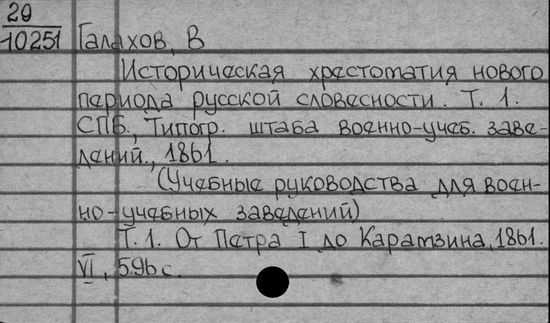 29
10251 Галахов, В
Историческая хрестоматия нового
периода русской словесности. Т. 1.
СПБ., Типогр. штаба военно-учеб. заве-
дений., 1861.
(Учебные руководства для воен-
но-учебных заведений)
Т. 1. От Петра I до Карамзина, 1861.
VI, 596 с.